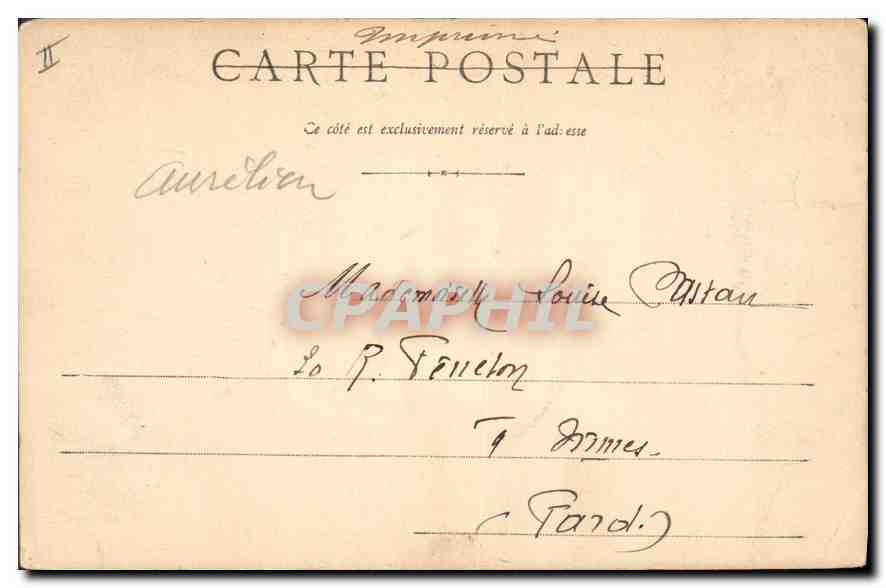 II
Imprimé
CARTE POSTALE
Ce côté est exclusivement réservé à l'adresse
Aurélien
Mademoiselle Louise Castan
CPAPHIL
20 R. Fénelon
Nîmes
(Gard.)